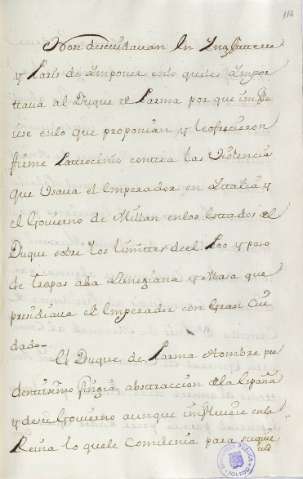 Non descuidavan En Inglaterra
y Paris de imponer esto que les impor
tava al Duque de Parma por que
ese exito que proponian y le ofrecieron
firme Patrocinio contra las Violencias
que Usava el Emperador en Italia y
el Governo de Millan en los Estados del
Duque sobre los limites de el Poo y paso
de tropas a la y Masa que
presidiava el Emperador con Gran Cui
dado-
El Duque de Parma Hombre pru
dentissimo fingia abstraccion de la España
y de su Govierno aunque influiese en la
Reina lo que le Combenia para